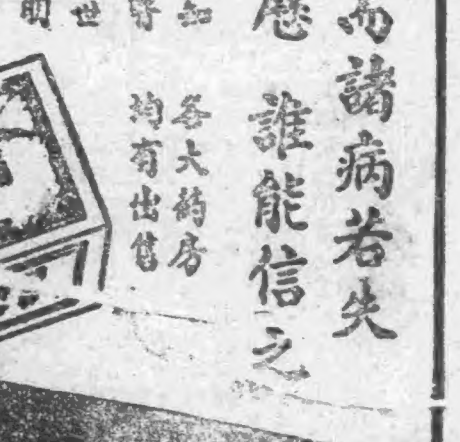 而諸病若失
歷 誰能信之
各大葯房
均有出售
知
世
明